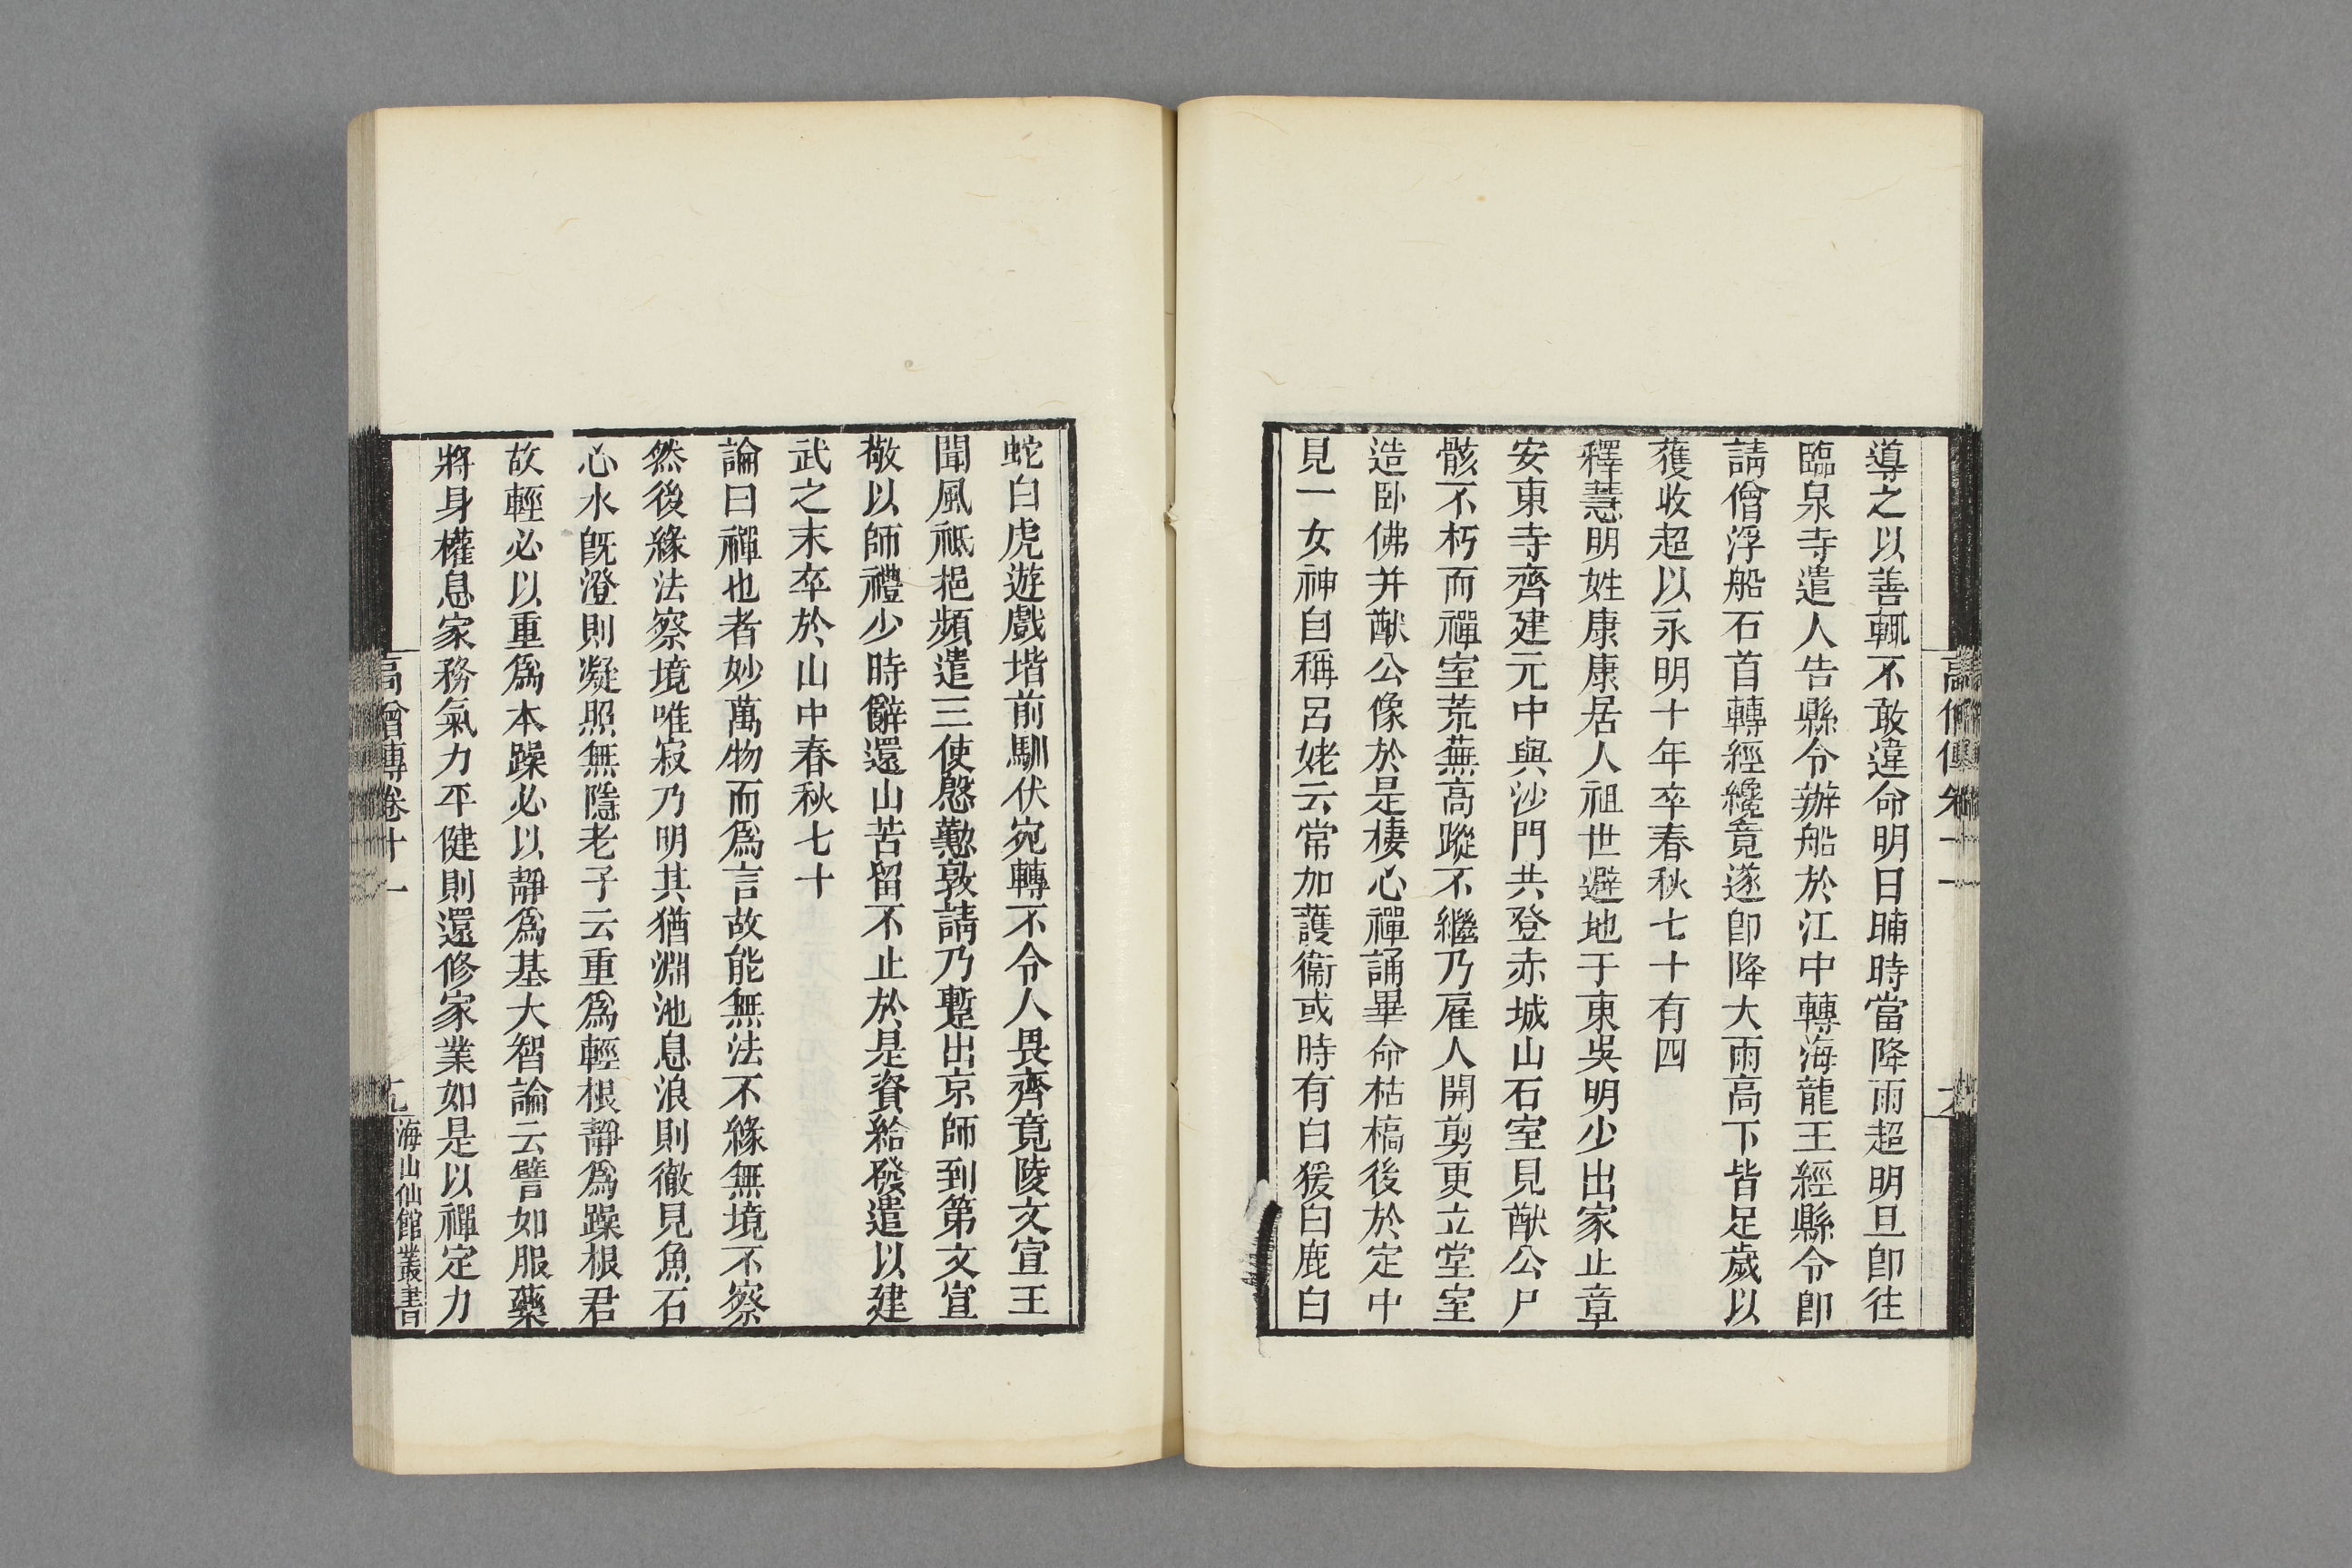 導之以善輒不敢違命明日晡時當降雨超明旦卽往
臨泉寺遣人告縣令辦船於江中轉海龍王經縣令卽
請僧浮船石首轉經纔竟遂卽降大雨高下皆足歲以
獲收超以永明十年卒春秋七十有四
釋慧明姓康康居人祖世避地于東吳明少出家止章
安東寺齊建元中與沙門共登赤城山石室見猷公尸
骸不朽而禪室荒蕪高蹤不繼乃雇人開剪更立堂室
造卧佛并猷公像於是棲心禪誦畢命枯槁後於定中
見一女神自稱呂姥云常加護衞或時有白猨白鹿白
蛇白虎遊戲堦前馴伏宛轉不令人畏齊竟陵文宣王
聞風祗挹頻遣三使慇懃敦請乃蹔出京師到第文宣
敬以師禮少時辭還山苦留不止於是資給發遣以建
武之末卒於山中春秋七十
論曰禪也者妙萬物而爲言故能無法不緣無境不察
然後緣法察境唯寂乃明其猶淵池息浪則徹見魚石
心水旣澄則凝照無隱老子云重爲輕根靜爲躁根君
故輕必以重爲本躁必以靜爲基大智論云譬如服藥
將身權息家務氣力平健則還修家業如是以禪定力
高僧傳卷十一
海山仙館叢書